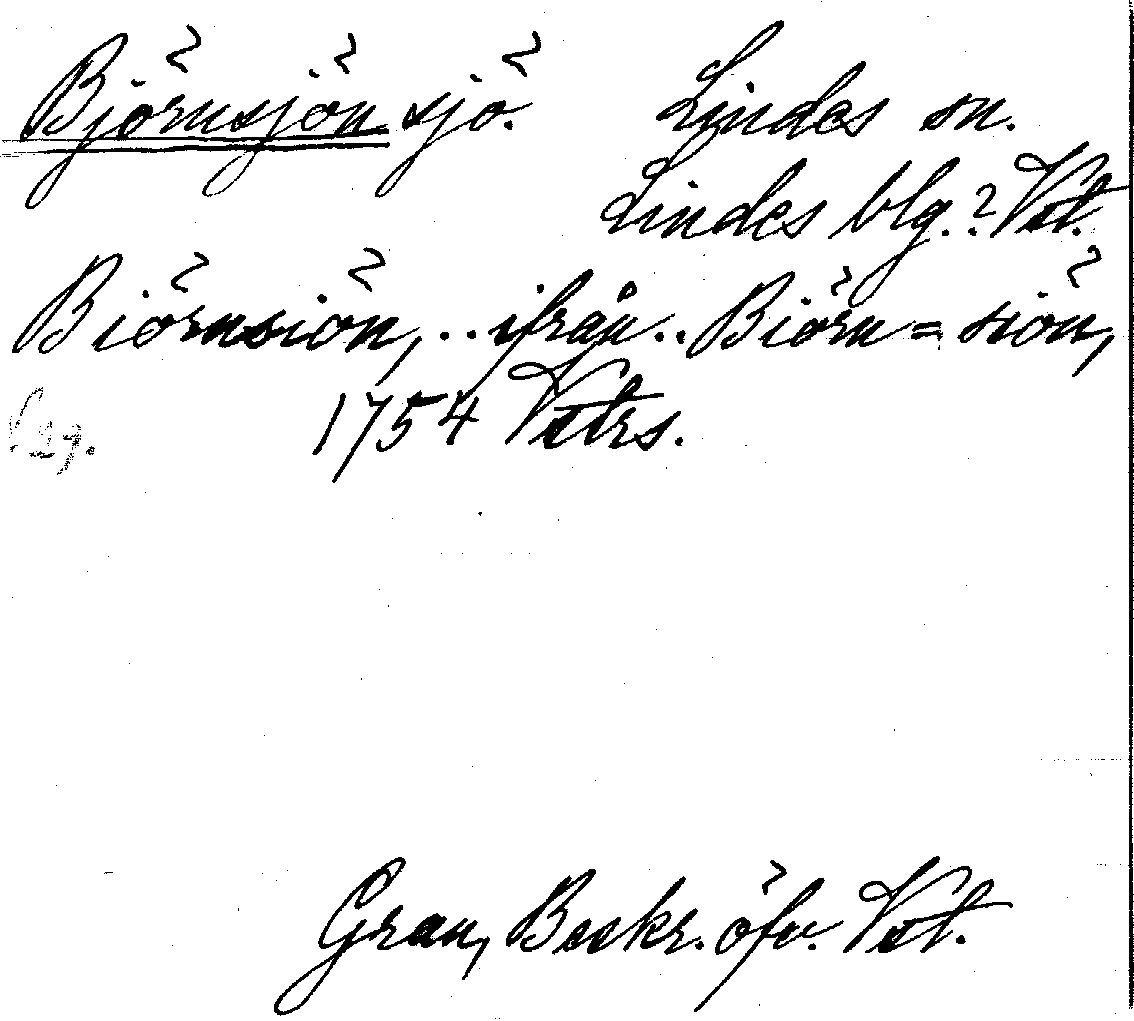 Björnsjön sjö. Lindes sn.
Lindes blg.? Vst.
Biörnsiön, .. ifrån .. Biörn=siön,
1754 Vstrs.
Grau, Beskr. öfv. Vst.